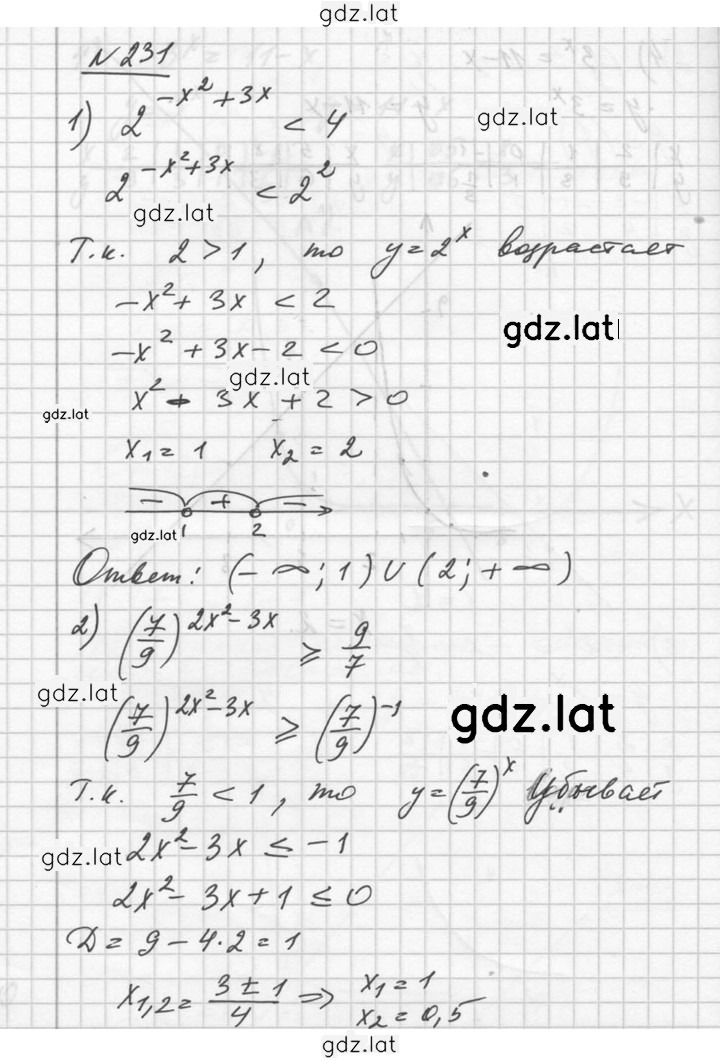 gdz.lat
N 231
1) 2^(-x²+3x) < 4
gdz.lat
2^(-x²+3x) < 2²
gdz.lat
Т.к. 2 > 1, то y = 2^x возрастает
-x² + 3x < 2
gdz.lat
-x² + 3x - 2 < 0
gdz.lat
x² - 3x + 2 > 0
gdz.lat
x₁ = 1 x₂ = 2
- + -
gdz.lat 1 2
Ответ: (-∞; 1) ∪ (2; +∞)
2) (7/9)^(2x²-3x) ≥ 9/7
gdz.lat
(7/9)^(2x²-3x) ≥ (7/9)^(-1)
gdz.lat
Т.к. 7/9 < 1, то y = (7/9)^x убывает
gdz.lat 2x² - 3x ≤ -1
2x² - 3x + 1 ≤ 0
Д = 9 - 4·2 = 1
x₁,₂ = (3 ± 1)/4 ⇒ x₁ = 1
x₂ = 0,5
gdz.lat